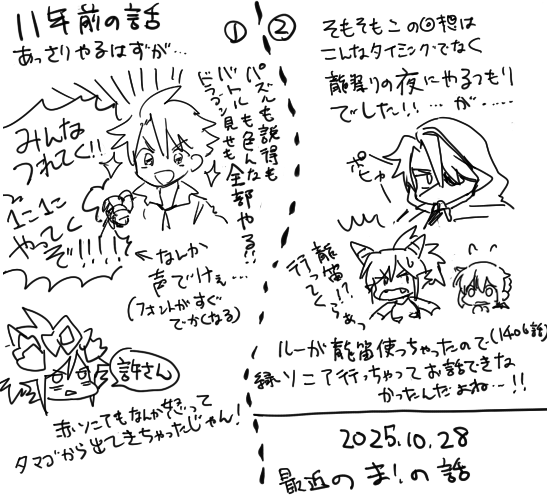 11年前の話
あっさりやるはずが…
①
パズルも説得も
バトルも色んな
ドラゴン見せも全部やる!!
みんな
つれてく!!
1こ1こ
やってく
ぞ!!!!!
←なんか
声でけぇ…
(フォントがすぐ
でかくなる)
許さん
赤ソニアもなんか怒って
タマゴから出てきちゃったじゃん!
②
そもそもこの回想は
こんなタイミングでなく
龍翠りの夜にやるつもり
でした!!…が……
ピュー
龍笛!?
行ってくらぁっ
ルーが龍笛使っちゃったので(1406話)
緑ソニア行っちゃってお話できな
かったんだよね…!!
2025.10.28
最近のま!の話